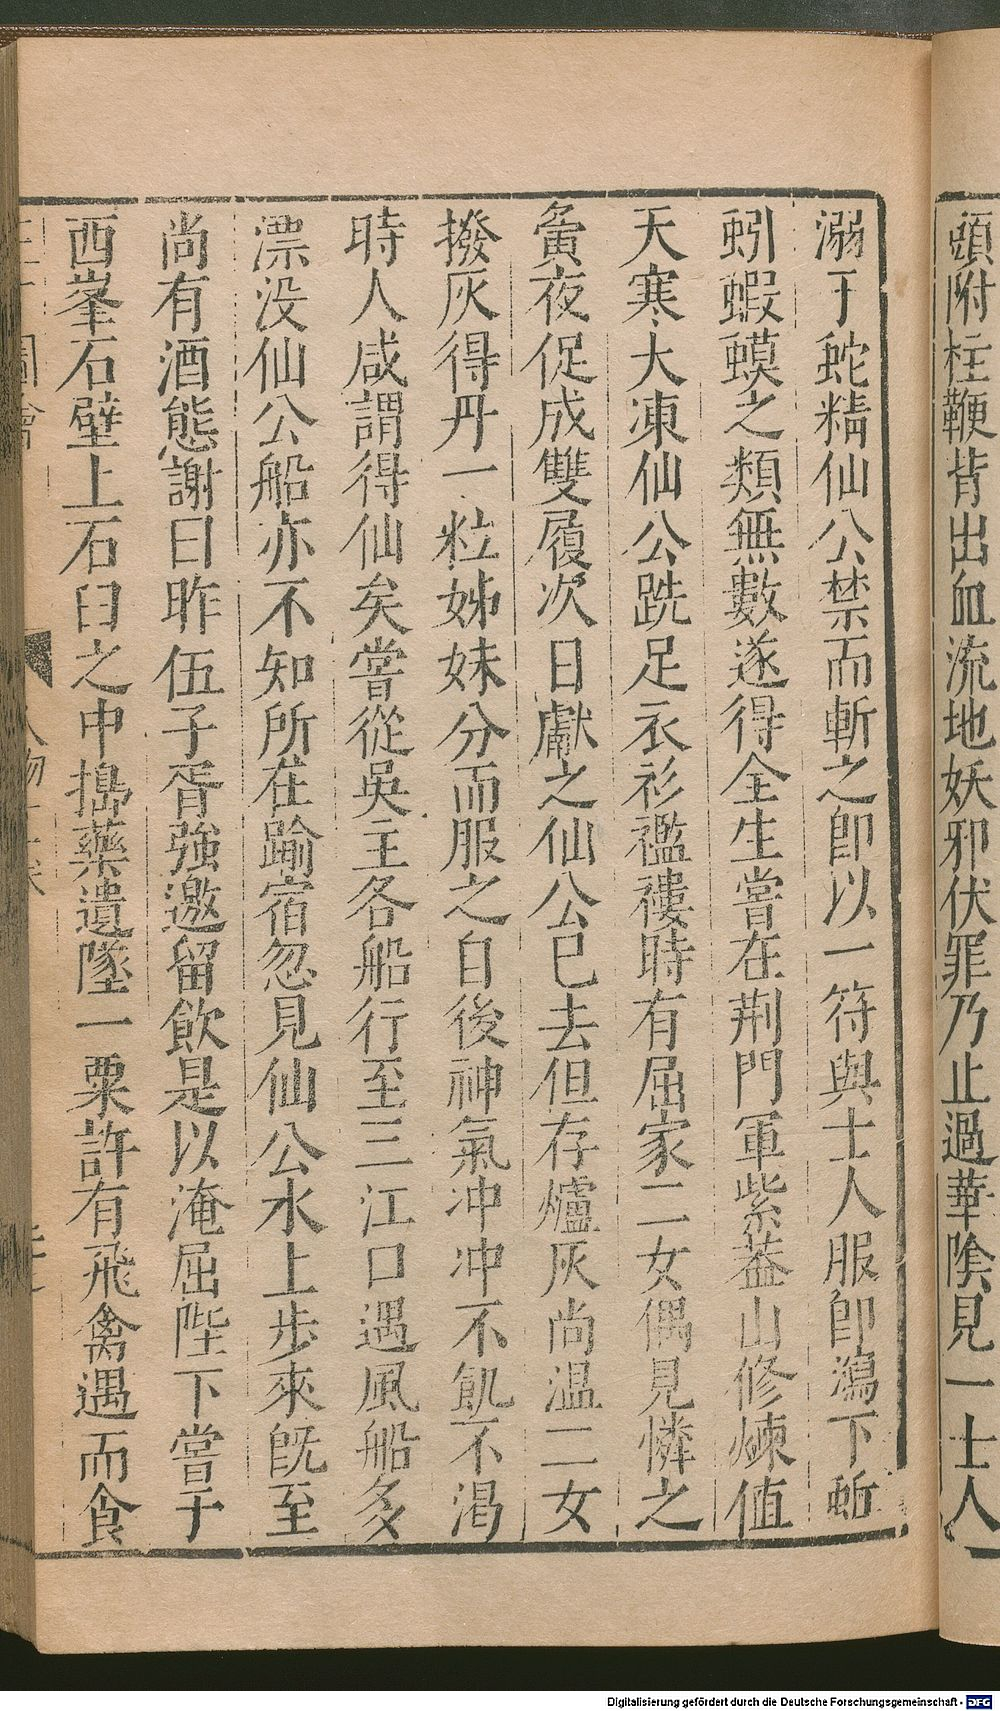 頭附柱鞭背出血流地妖邪伏罪乃止過華陰見一士人
溺于蛇精仙公禁而斬之卽以一符與士人服卽瀉下蚯
蚓蝦蟆之類無數遂得全生嘗在荆門軍紫葢山修煉值
天寒大凍仙公跣足衣衫襤褸時有屈家二女偶見憐之
夤夜促成雙履次日獻之仙公已去但存爐灰尚温二女
撥灰得丹一粒姊妹分而服之自後神氣冲冲不飢不渴
時人咸謂得仙矣嘗從吳主各船行至三江口遇風船多
漂没仙公船亦不知所在踰宿忽見仙公水上步來旣至
尚有酒態謝曰昨伍子胥強邀留飲是以淹屈陛下嘗于
西峯石壁上石臼之中搗藥遺墜一粟許有飛禽遇而食
人物
Digitalisierung gefördert durch die Deutsche Forschungsgemeinschaft - DFG